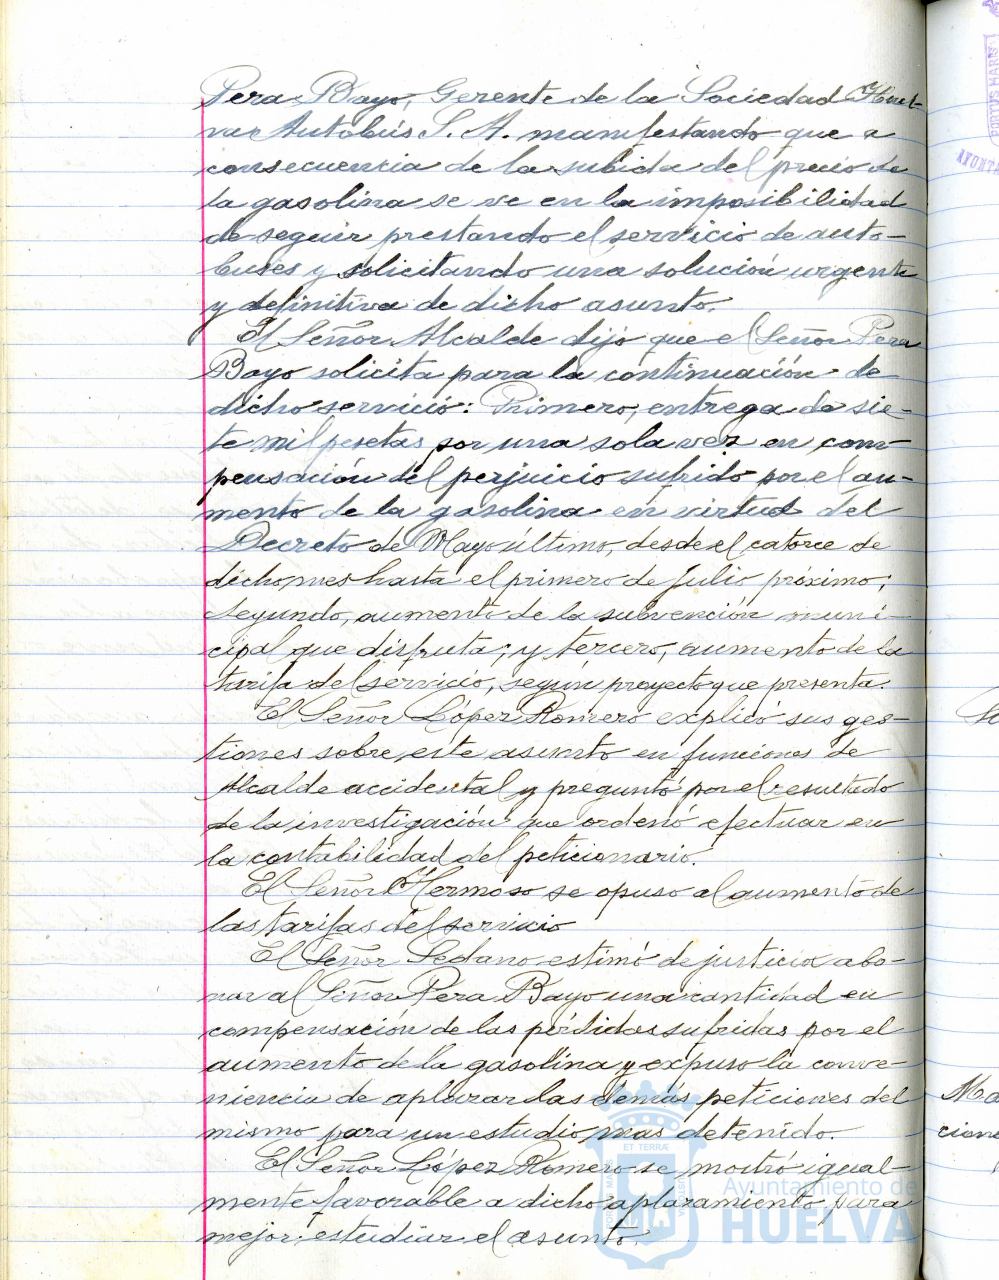 Pera Bayo, Gerente de la Sociedad Huel-
var Autobús S. A. manifestando que a
consecuencia de la subida del precio de
la gasolina se ve en la imposibilidad
de seguir prestando el servicio de auto-
buses y solicitando una solución urgente
y definitiva de dicho asunto.
El Señor Alcalde dijo que el Señor Pera
Bayo solicita para la continuación de
dicho servicio: Primero, entrega de sie-
te mil pesetas por una sola vez en com-
pensación del perjuicio sufrido por el au-
mento de la gasolina en virtud del
Decreto de Mayo último, desde el catorce de
dicho mes hasta el primero de Julio próximo;
Segundo, aumento de la subvención muni-
cipal que disfruta; y tercero, aumento de la
tarifa del servicio, según proyecto que presenta.
El Señor López Romero explicó sus ges-
tiones sobre este asunto en funciones de
Alcalde accidental y preguntó por el resultado
de la investigación que ordenó efectuar en
la contabilidad del peticionario.
El Señor Hermoso se opuso al aumento de
las tarifas del servicio
El Señor Sedano estimó de justicia abo-
nar al Señor Pera Bayo una cantidad en
compensación de las pérdidas sufridas por el
aumento de la gasolina y expuso la conve-
niencia de aplazar las demás peticiones del
mismo para un estudio mas detenido.
El Señor López Romero se mostró igual-
mente favorable a dicho aplazamiento para
mejor estudiar el asunto.
Ayuntamiento de
HUELVA
PORTUS MARIS
ET TERRÆ
CUSTODIA
Ma
cione